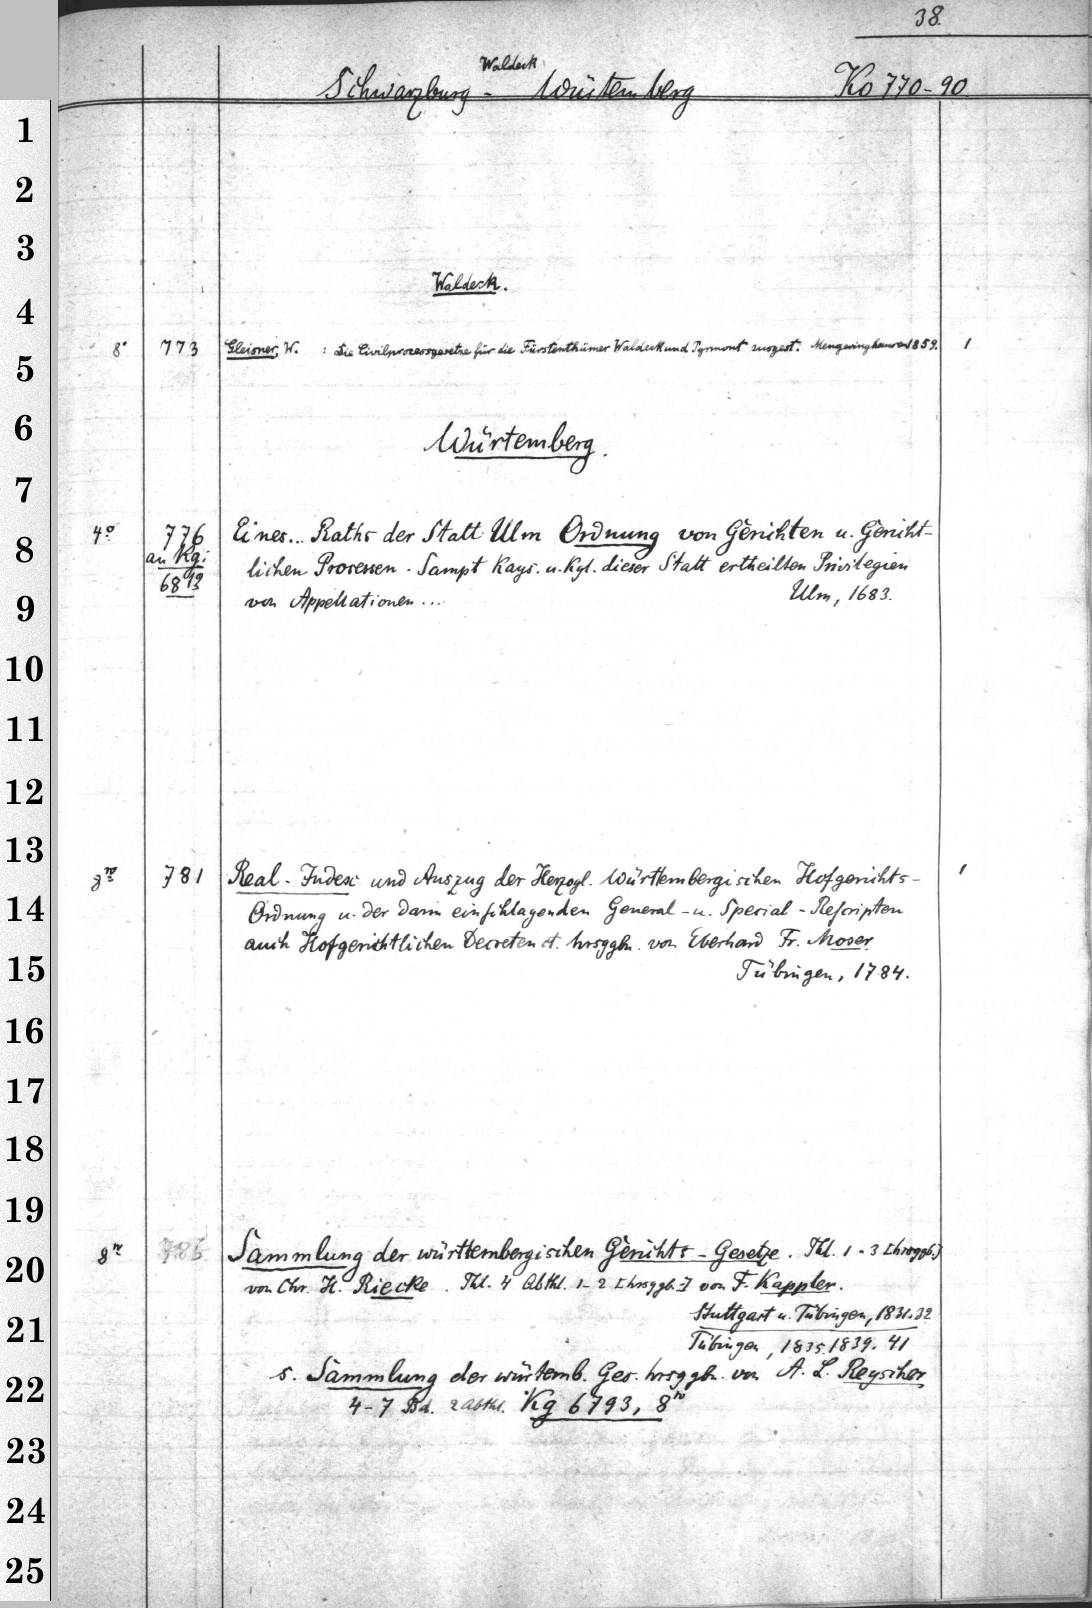 38.
Waldeck
Schwarzburg - Würtemberg Ko 770-90.
1
2
3
Waldeck.
4
8° 773 Gleisner, W. : Die Civilprocessgesetze für die Fürstenthümer Waldeck und Pyrmont zusgest. Mengeringhausen 1859. 1
5
6
Würtemberg.
7
4° 776 Eines... Raths der Statt Ulm Ordnung von Gerichten u. Gericht-
8
an Kg: lichen Processen. Sampt Kays. u. Kgl. dieser Statt ertheilten Privilegien
6813 von Appellationen ... Ulm, 1683.
9
10
11
12
13
8vo 781 Real-Index und Auszug der Herzogl. Württembergischen Hofgerichts- 1
14
Ordnung u. der darin einschlagenden General- u. Special-Rescripten
auch Hofgerichtlichen Decreten hrsggbn. von Eberhard Fr. Moser.
15
Tübingen, 1784.
16
17
18
19
8vo 786 Sammlung der württembergischen Gerichts-Gesetze. Thl. 1-3 [hrsggb.]
20
von Chr. H. Riecke. Thl. 4 Abthl. 1-2 [hrsggb.] von F. Kappler.
Stuttgart u. Tübingen, 1831.32
21
Tübingen, 1835. 1839. 41
s. Sammlung der würtemb. Ges. hrsggbn. von A. L. Reyscher
22
4-7 Bd. 2 Abthl. Kg 6793, 8vo
23
24
25